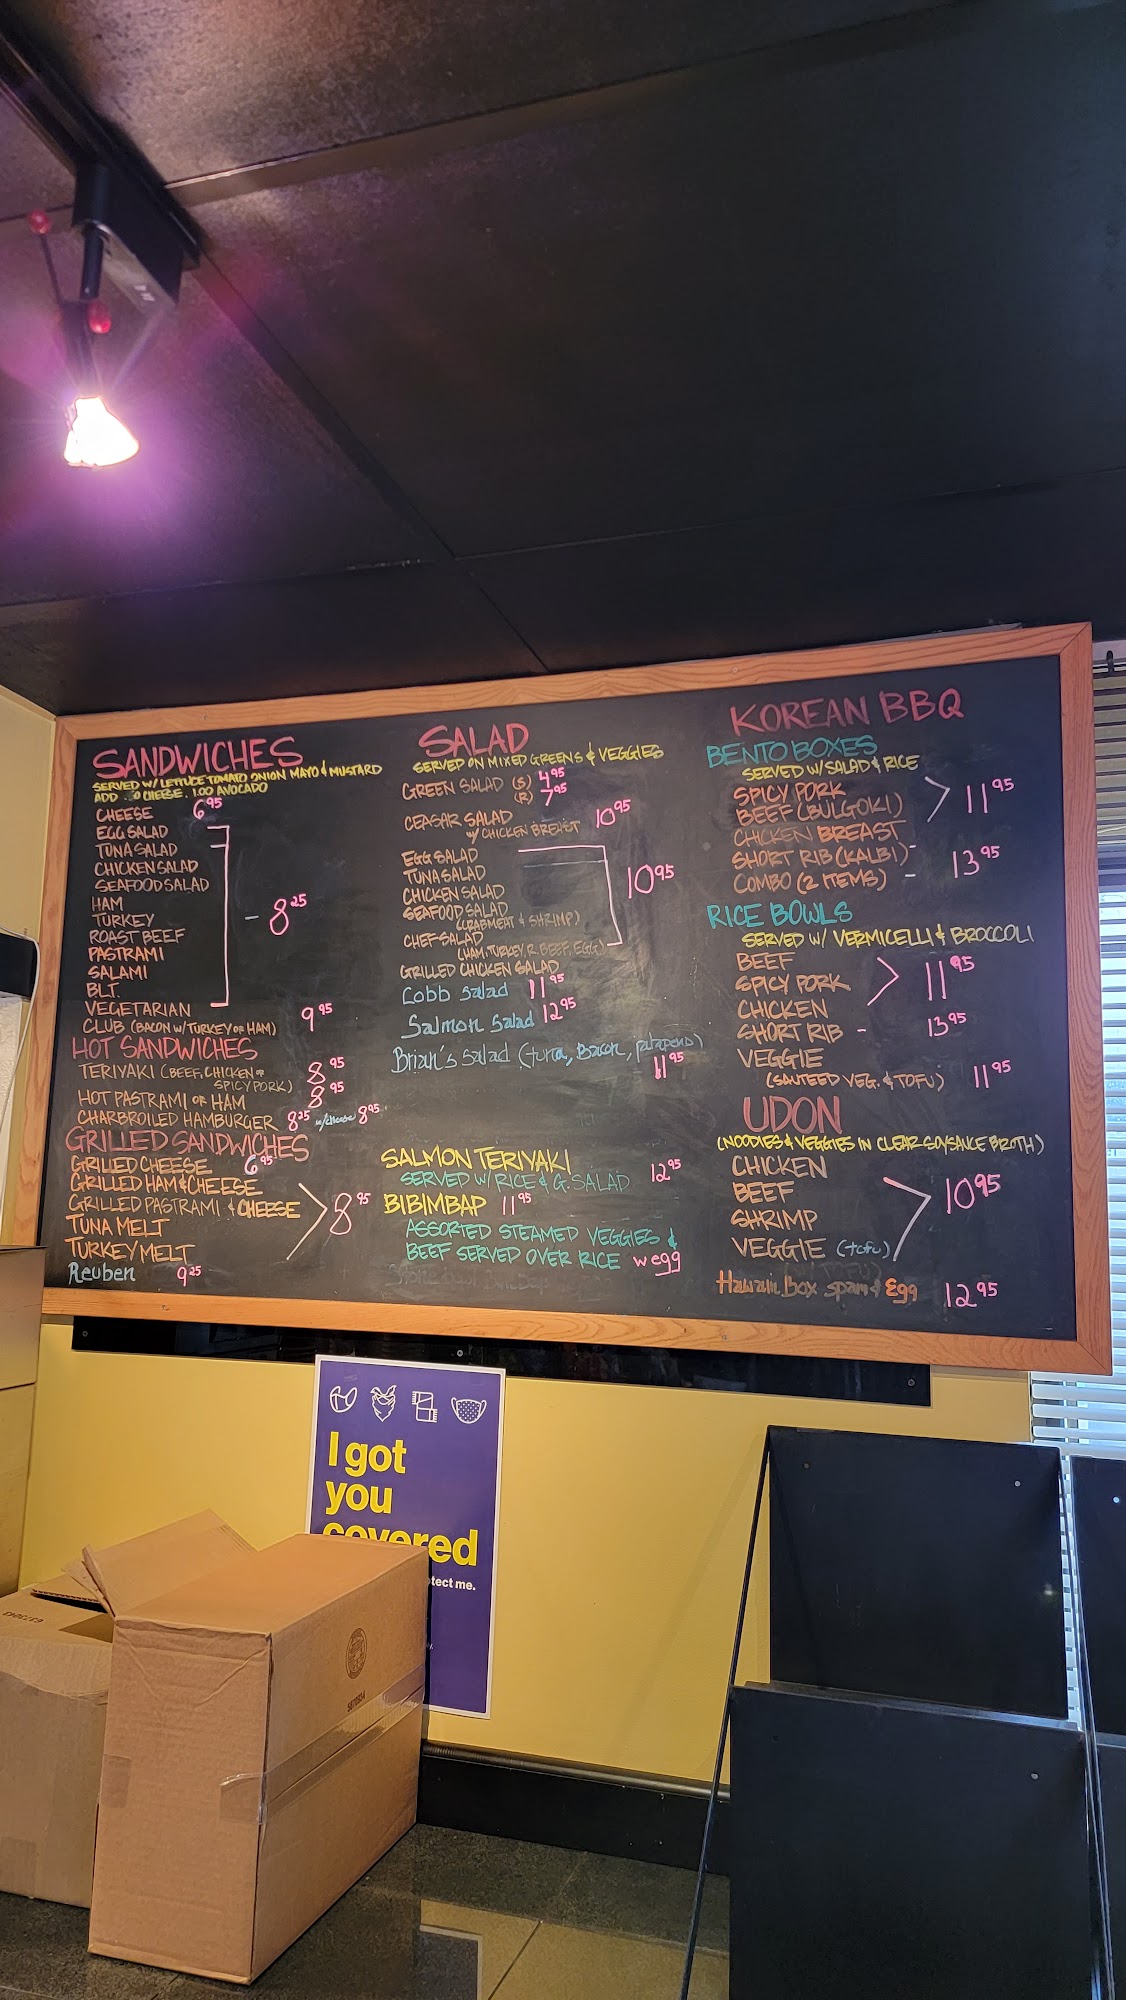 SANDWICHES
SERVED W/ LETTUCE TOMATO ONION MAYO & MUSTARD
ADD CHEESE. 1.00 AVOCADO
CHEESE 6.95
EGG SALAD
TUNA SALAD
CHICKEN SALAD
SEAFOOD SALAD
HAM
TURKEY - 8.25
ROAST BEEF
PASTRAMI
SALAMI
BLT.
VEGETARIAN
CLUB (BACON W/TURKEY OR HAM) 9.95
HOT SANDWICHES
TERIYAKI (BEEF, CHICKEN OR 8.95
SPICY PORK)
HOT PASTRAMI OR HAM 8.95
CHARBROILED HAMBURGER 8.25 w/cheese 8.95
GRILLED SANDWICHES
GRILLED CHEESE 6.95
GRILLED HAM & CHEESE
GRILLED PASTRAMI & CHEESE 8.95
TUNA MELT
TURKEY MELT
Reuben 9.25
SALAD
SERVED ON MIXED GREENS & VEGGIES
GREEN SALAD (S) 4.95
(R) 7.95
CEASAR SALAD 10.95
W/ CHICKEN BREAST
EGG SALAD
TUNA SALAD
CHICKEN SALAD 10.95
SEAFOOD SALAD
(CRABMEAT & SHRIMP)
CHEF SALAD
(HAM, TURKEY, R. BEEF, EGG)
GRILLED CHICKEN SALAD
Cobb Salad 11.95
Salmon Salad 12.95
Brian's Salad (tuna, Bacon, jalapeno)
11.95
SALMON TERIYAKI
SERVED W/ RICE & G. SALAD 12.95
BIBIMBAP 11.95
ASSORTED STEAMED VEGGIES &
BEEF SERVED OVER RICE w egg
KOREAN BBQ
BENTO BOXES
SERVED W/ SALAD & RICE
SPICY PORK
BEEF (BULGOKI) 11.95
CHICKEN BREAST
SHORT RIB (KALBI) - 13.95
COMBO (2 ITEMS) -
RICE BOWLS
SERVED W/ VERMICELLI & BROCCOLI
BEEF
SPICY PORK 11.95
CHICKEN
SHORT RIB - 13.95
VEGGIE
(SAUTEED VEG. & TOFU) 11.95
UDON
(NOODLES & VEGGIES IN CLEAR SOYSAUCE BROTH)
CHICKEN
BEEF 10.95
SHRIMP
VEGGIE (tofu)
Hawaiin Box spam & Egg 12.95
I got
you
covered
tect me.